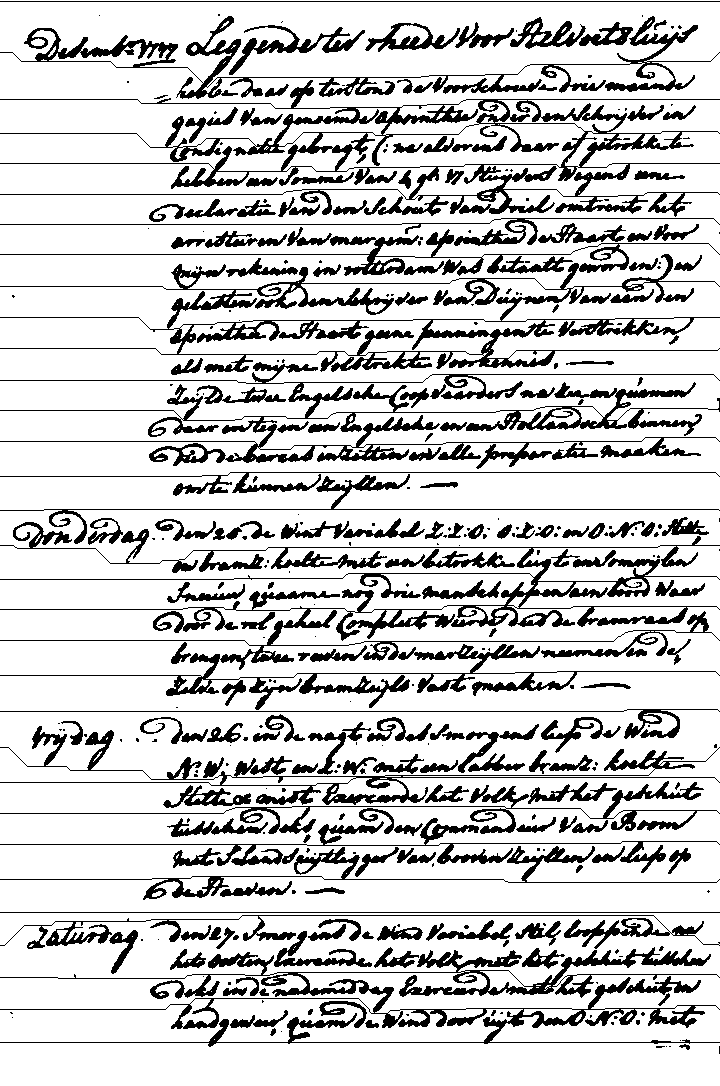 Desemb:r 1777 Leggende ter rheede voor Helvoetsluijs
hebbe daar op terstond de voorschreve drie maande
gagies van genoemde Apointhee onder den Schrijver in
Consignatie gebragt, (: na alvorens daar af getrokke te
hebben een Somme van 4 gl: 17 Stuijvers wegens eene
declaratie van den Schout van Driel omtrent het
arresteeren van meergem: apointhee de Haart en voor
mijn rekening in rotterdam was betaalt geworden:) en
gelasten ook den Schrijver van Duijnen, van aan den
Apointhee de Haart geene penningen te verstrekken,
als met mijne volstrekte voorkennis.
Zeijlde twee Engelsche Coopvaarders na Zee, en quamen
daar en tegen een Engelsche, en een Hollandsche binnen,
lied de barcas in zetten en alle preparatie maaken
om te kunnen Zeijllen.
Donderdag den 25. de Wint Variabel Z:Z:O: O:Z:O: en O:N:O: Stille
en bramz: koelte met een betrokke lugt en Somwijlen
Sneeuw, quaame nog drie manschappen aen boord waar
door de rol geheel Compleet wierde, deed de bramraas op
brengen, twee reeven in de marzeijllen neemen en de
Zelve op zijn bramzeijls vast maaken.
Vrijdag .. den 26. in de nagt en des Smorgens liep de Wind
N:W; West, en Z:W: met een labber bramz: koelte
Stilte & mist Exerceerde het Volk, met het geschut
tusschen deks, quam den Commandeur Van Boom
met S'Lands uijtlegger van booven Zeijllen, en liep op
de Haaven.
Zaturdag. den 27. Smorgens de Wind Variabel, Stil, looppende na
het oosten, Exerceerde het Volk met het geschut tusschen
deks, in de nademiddag Exerceerde met het geschut, en
handgeweer, quam de Wind door uijt den O:N:O: met